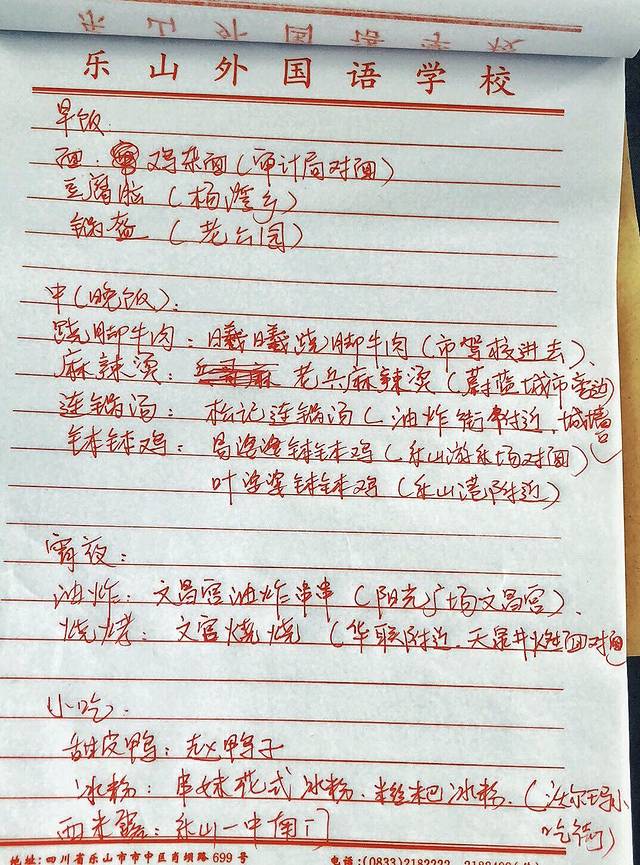 乐山外国语学校
早饭
面: 鸡杂面(审计局对面)
豆腐脑 (杨湾乡)
锅盔 (老公园)
中(晚饭):
跷脚牛肉: 曦曦跷脚牛肉(市驾校进去)、
麻辣烫: 老兵麻辣烫(蔚蓝城市旁边)
连锅汤: 标记连锅汤(油炸街附近.城墙
钵钵鸡: 冯婆婆钵钵鸡(乐山游乐场对面)
叶婆婆钵钵鸡(乐山港附近)
宵夜:
油炸: 文昌宫油炸串串 (阳光广场文昌宫)、
烧烤: 文宫烧烤 (华联附近.天泉井火锅对面
小吃:
甜皮鸭: 赵鸭子
冰粉: 串妹花式冰粉. 糍粑冰粉.(沃尔玛小
吃街)
西米露: 乐山一中南门
地址:四川省乐山市市中区肖坝路 699 号
电话:(0833)2182222